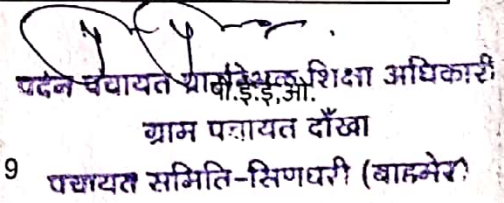 पदेन पंचायत प्रारंभिक शिक्षा अधिकारी
पी.ई.ई.ओ.
ग्राम पंचायत दाँखा
9 पंचायत समिति-सिणधरी (बाड़मेर)